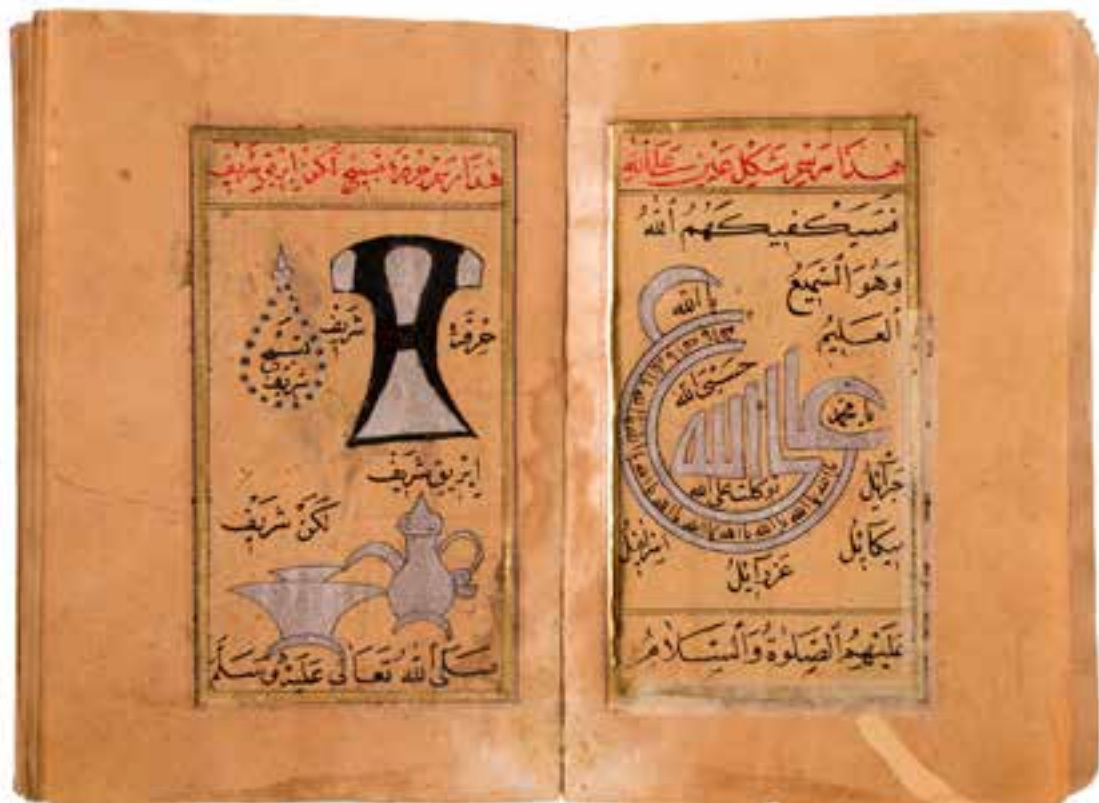 هذا مهر شكل عين على الله
فسيكفيكهم الله
وهو السميع
العليم
يا الله
حسبي الله
يا محمد
على الله
توكلت على الله
جرائيل
ميكائيل
عزرائيل
عليهم الصلوة والسلام
هذا مهر خرقة تسبيح لكن ابريق شريف
خرقة شريف
تسبيح
شريف
ابريق شريف
لكن شريف
صلى الله تعالى عليه وسلم